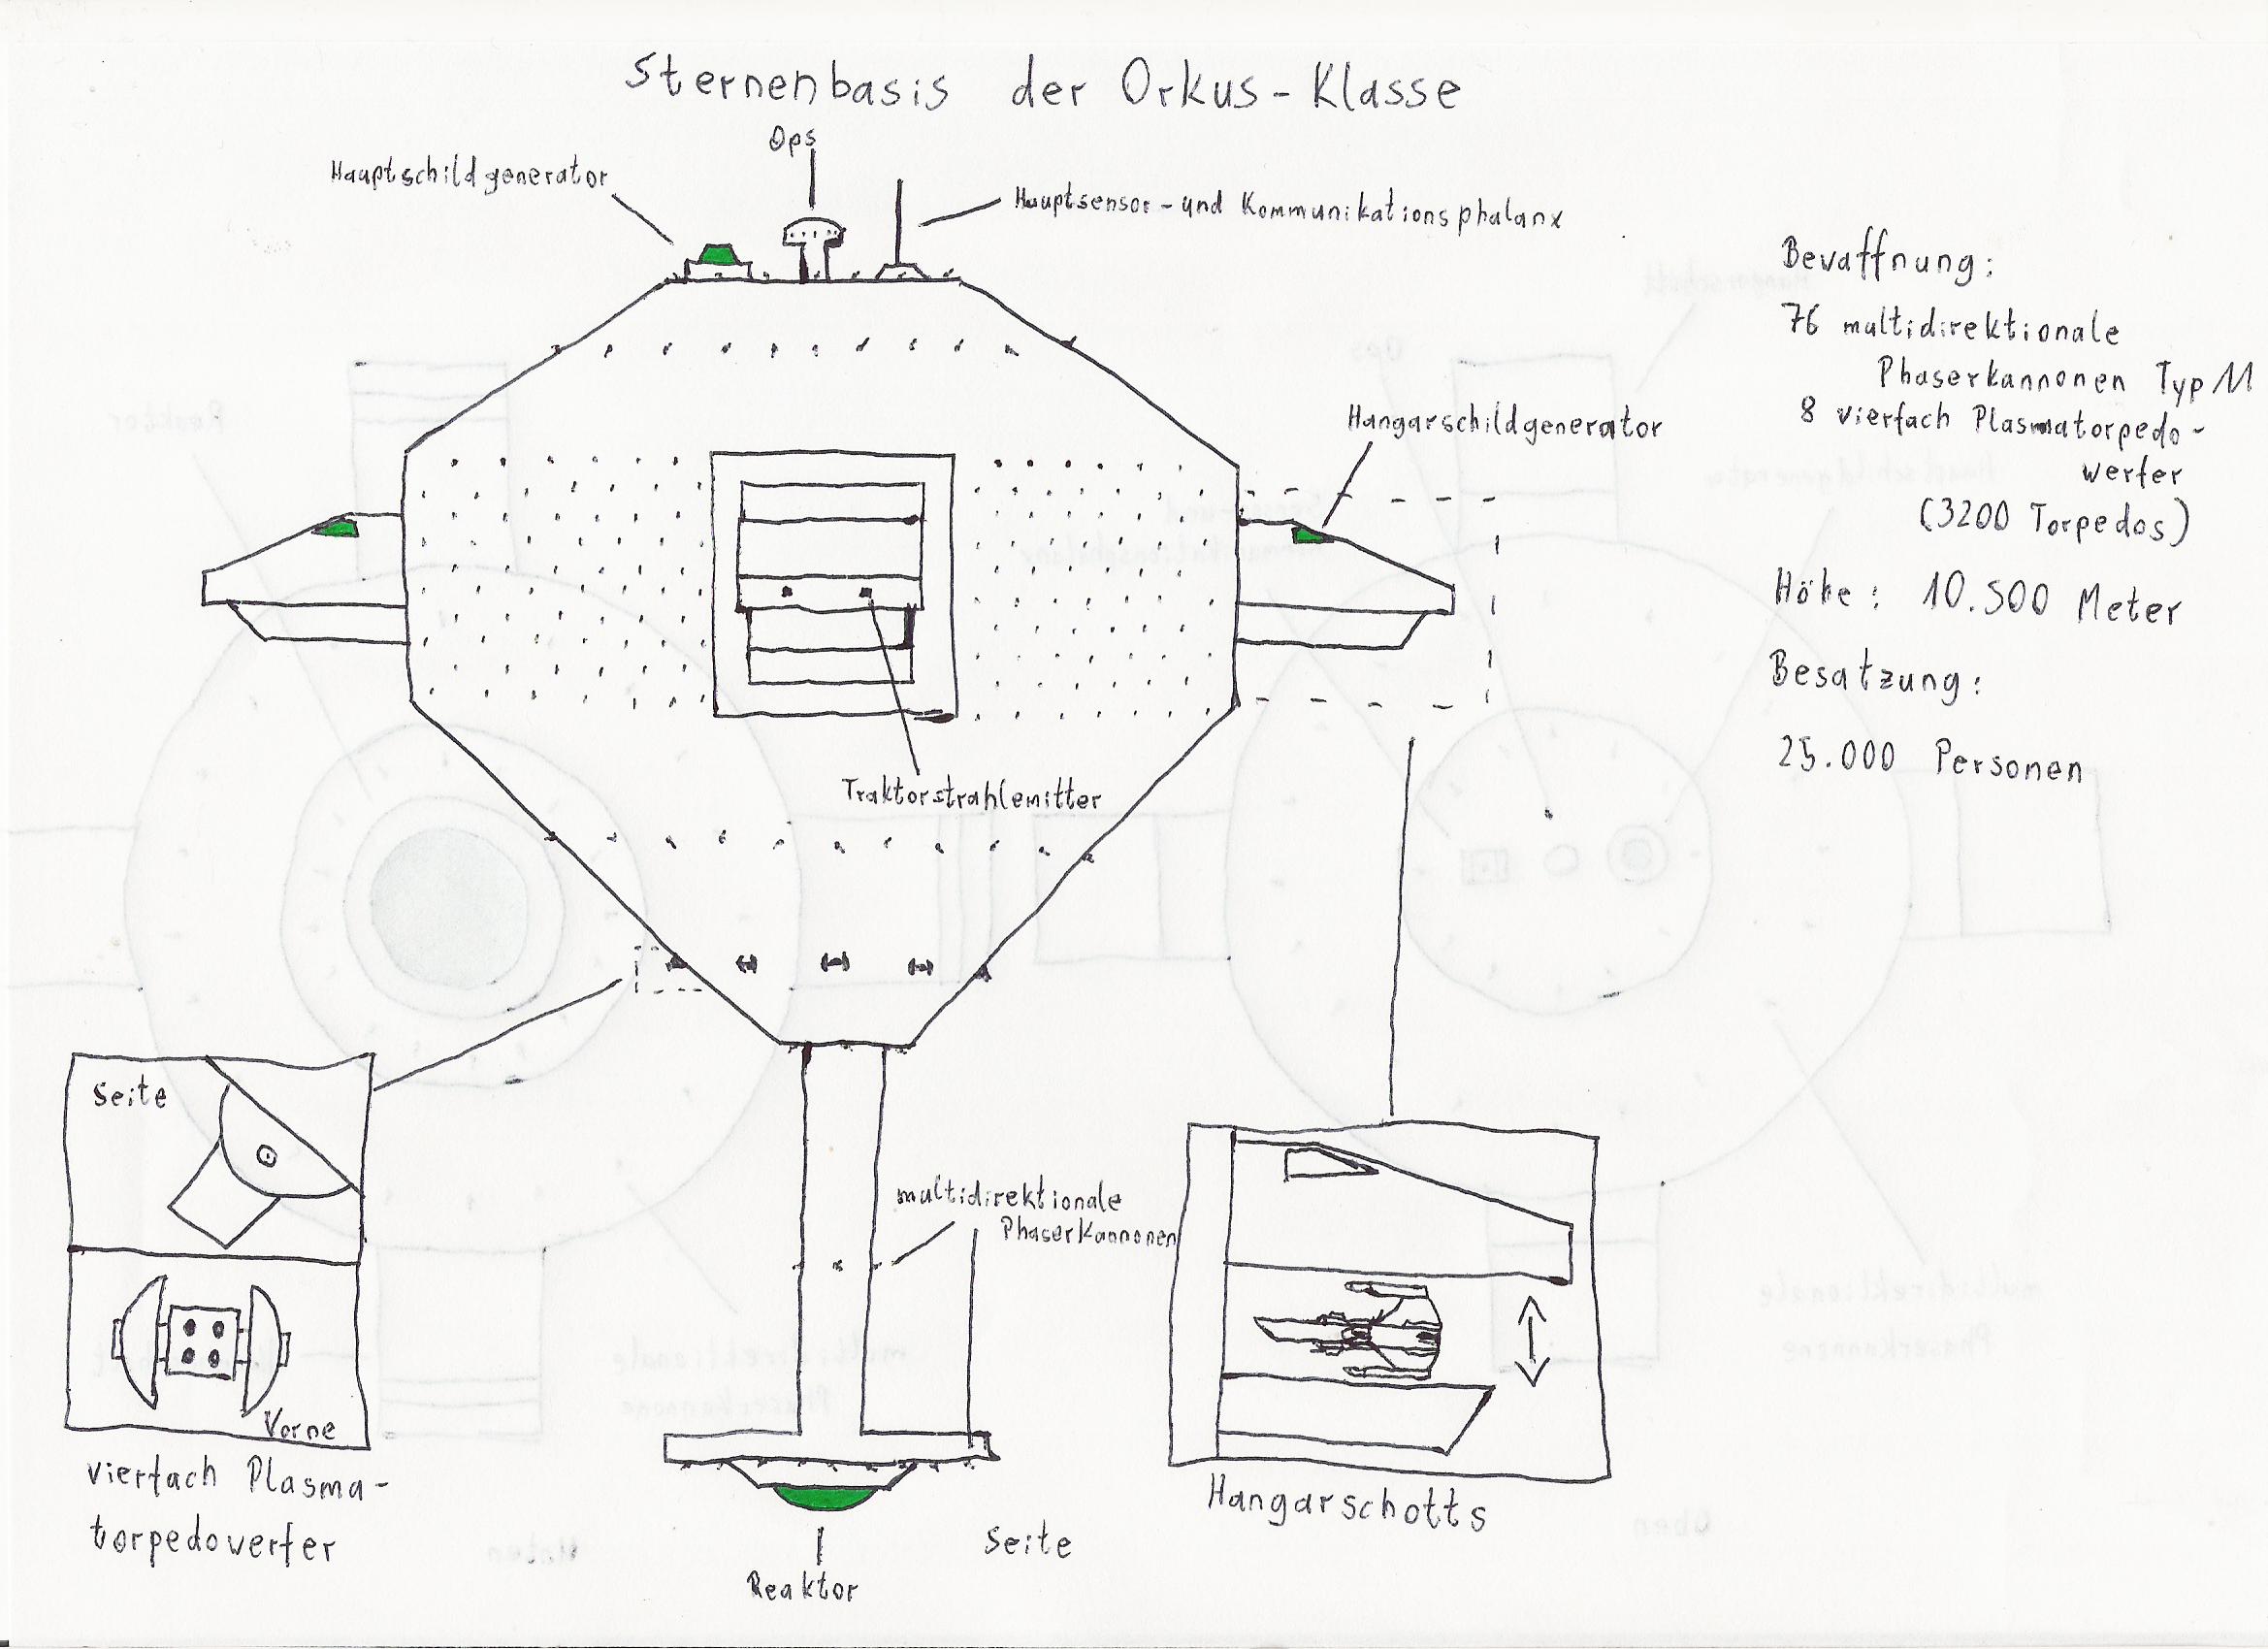 Sternenbasis der Orkus-Klasse
Ops
Hauptschildgenerator
Hauptsensor-und Kommunikationsphalanx
Bewaffnung:
76 multidirektionale
Phaserkannonen Typ 11
8 vierfach Plasmatorpedo-
werfer
(3200 Torpedos)
Höhe: 10.500 Meter
Besatzung:
25.000 Personen
Hangarschildgenerator
Traktorstrahlemitter
Seite
Vorne
vierfach Plasma-
torpedowerfer
multidirektionale
Phaserkannonen
Hangarschotts
Seite
Reaktor